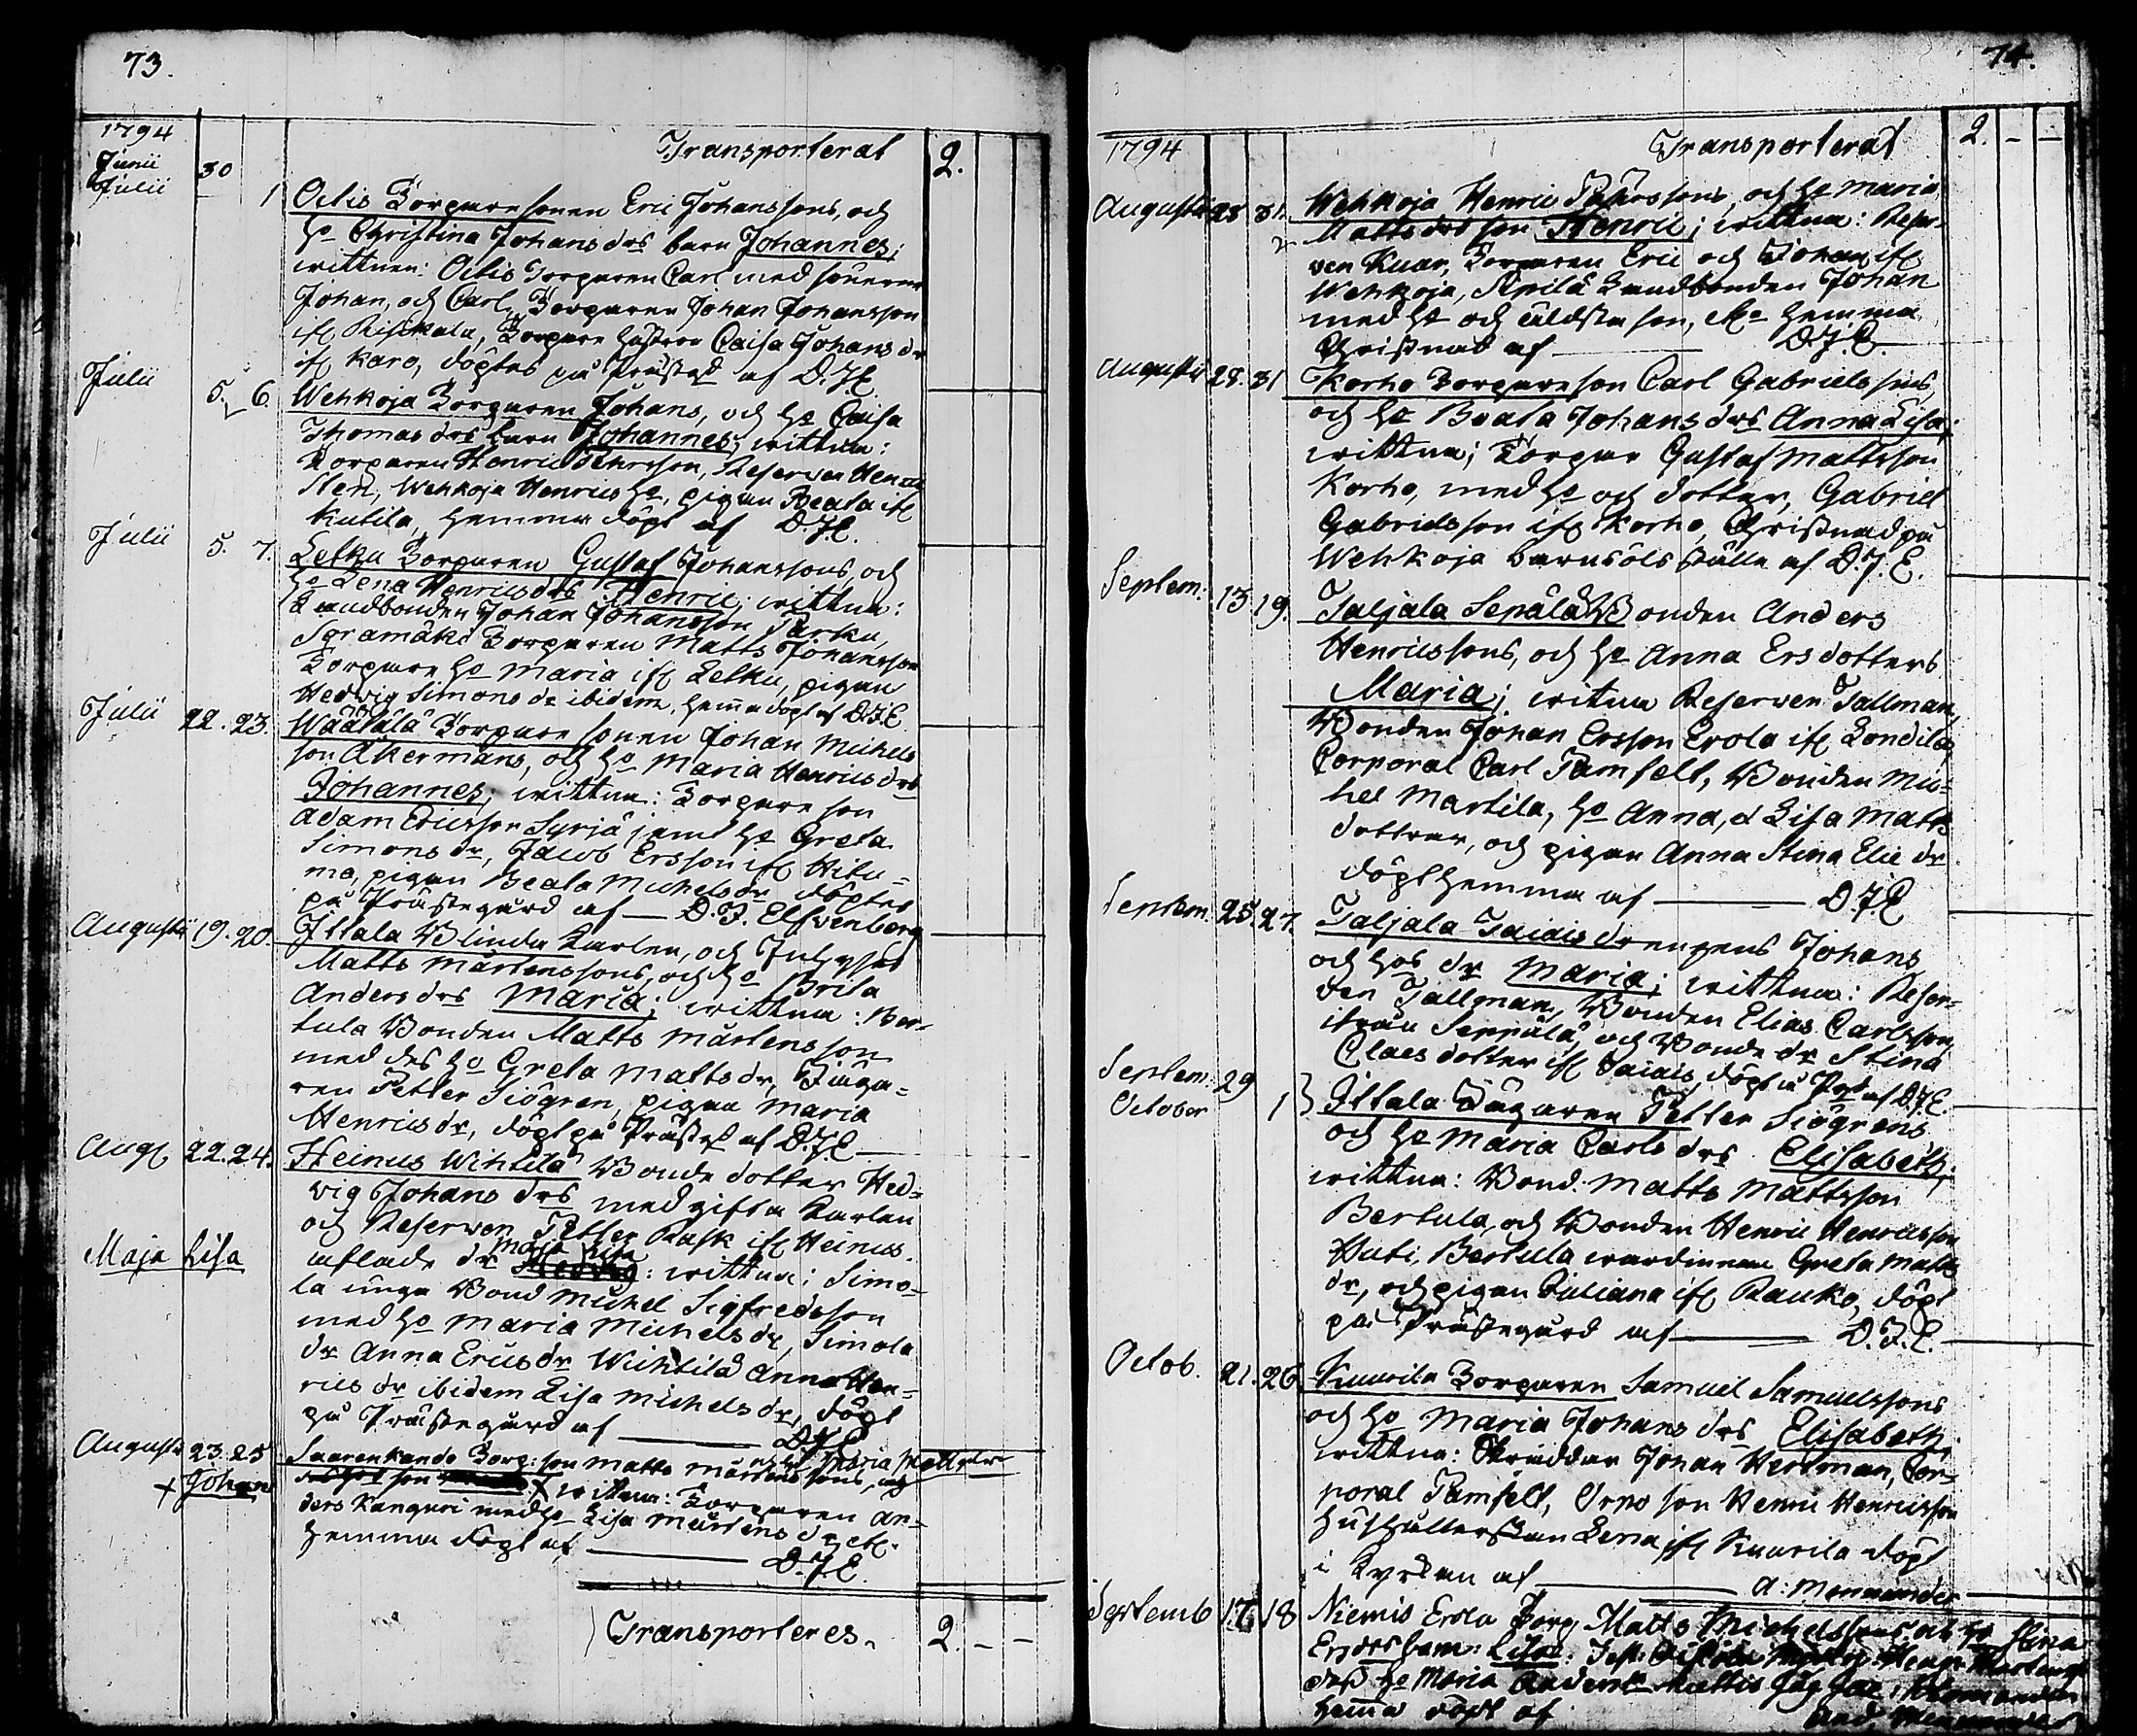 73.
1794
Transporterat 2.
Junii 30
Julii 1 Oitis Torpare sonen Eric Johanssons, och
ho Christina Johans drs barn Johannes;
wittnen: Oitis Torparen Carl med sönerne
Johan, och Carl, Torparen Johan Johansson
ifr Risikala, Torpare hustron Caisa Johans dr
ifr Karo, döptes på Prästegd af D.J.E.
Julii 5. 6. Wehkoja Torparen Johans, och ho Caisa
Thomas drs barn Johannes; wittnen:
Torparen Henric Påhrsson, Reserven Henric
Sten, Wehkoja Henrics ho, pigan Beata ifr
Kutila, hemma döpt af D.J.E.
Julii 5. 7. Letku Torparen Gustaf Johanssons, och
ho Lena Henrics drs Henric; wittnen:
Landbonden Johan Johansson Parku,
Torparen Matts Johansson
Torpare ho Maria ifr Letku, pigan
Hedvig Simons dr ibidem, hemma döpt af D.J.E.
Julii 22. 23. Wäätälä Torpare sonen Johan Michels
son Åkermans, och ho Maria Henrics drs
Johannes; wittnen: Torpare son
Adam Ericsson Syrjä jemt ho Greta
Simons dr, Jacob Ersson ifr Hitu=
ma, pigan Beata Michels dr döptes
på Prästegård af — D.J. Elfwenberg
Augusti 19. 20. Ittala Blinda Karlen, och Inhyses
Matts Mårtenssons, och ho Brita
Anders drs Maria; wittnen: Ber=
tula Bonden Matts Mårtensson
med des ho Greta Matts dr, Jäga=
ren Petter Siögren, pigan Maria
Henrics dr, döpt på Prästegd af D.J.E.
Augs 22. 24. Heinus Wihtilä Bonde dotter Hed=
vig Johans drs med gifta Karlen
och Reserven Petter Rask ifr Heinus
Maja Lisa
aflade dr Maja Lisa: wittnen: Simo=
la unga Bond Michel Sigfredsson
med ho Maria Michels dr, Simola
dr Anna Erics dr Wichtilä Anna Hen=
rics dr ibidem Lisa Michels dr, döpt
på Prästegård af — D.J.E.
Augusti 23. 25 Saarenkando Torp: son Matts Mårtenssons, och ho Maria Matts dr
+ Johan
son + wittnen: Torparen An=
ders Kanguri med ho Lisa Mårtens dr etc.
hemma döpt af — D.J.E.
Transporteres. 2. - -
74.
1794
Transporterat 2. - -
Augusti 28. 31. Wehkoja Henric Påhrssons, och ho Maria
Matts drs son Henric; wittnen: Reser=
ven Kuar, Torparen Eric och Johan ifr
Wehkoja, Anttila Landbonden Johan
med ho och äldsta son, etc. hemma
Christnat af — D.J.E.
Augusti 28. 31 Korho Torpare son Carl Gabrielssons,
och ho Beata Johans drs Anna Lisa;
wittnen; Torpar Gustaf Mattsson
Korho, med ho och dotter, Gabriel
Gabrielsson ifr Korho, Christnad på
Wehkoja barnsöls ställe af D.J.E.
Septem: 13 19. Taljala Sepälä Bonden Anders
Henricssons, och ho Anna Ers dotters
Maria; witnen Reserven Tallman,
Bonden Johan Ersson Erola ifr Kondila,
Corporal Carl Tamfelt, Bonden Mic=
hel Martila, ho Anna, d Lisa Matts
dottrar, och pigan Anna Stina Elie dr
döpt hemma af — D.J.E.
Septem. 25. 27. Taljala Taiais drengens Johans
och hos dr Maria; wittnen: Reser=
ven Tallman, Bonden Elias Carlsson
ifrån Seppälä, och Bonde dr Stina
Claes dotter ifr Taiais, döpt i Pgd af D.J.E.
Septem: 29
October 1 } Ittala Jägaren Petter Siögrens
och ho Maria Carls drs Elisabeth;
wittnen: Bond. Matts Mattsson
Bertula, och Bonden Henric Henricsson
Puti, Bertula wärdinnan Greta Matts
dr, och pigan Juliana ifr Rauko, döpt
på Prästegård af — D.J.E.
Octob. 21. 26 Kuurila Torparen Samuel Samuelssons
och ho Maria Johans drs Elisabeth;
wittnen: Skräddar Johan Hertman, Cor=
poral Tamfelt, Orpo son Henric Henricsson
Hushållerskan Lena ifr Kuurila döpt
i Kyrkan af — A: Mennander
Septemb 17. 18 Niemis Erola Torp. Matts Michelssons och ho Stina
Ers drs barn: Lisa: Test:
des ho Maria Anders dr Mattis
hemma döpt af And. Mennander